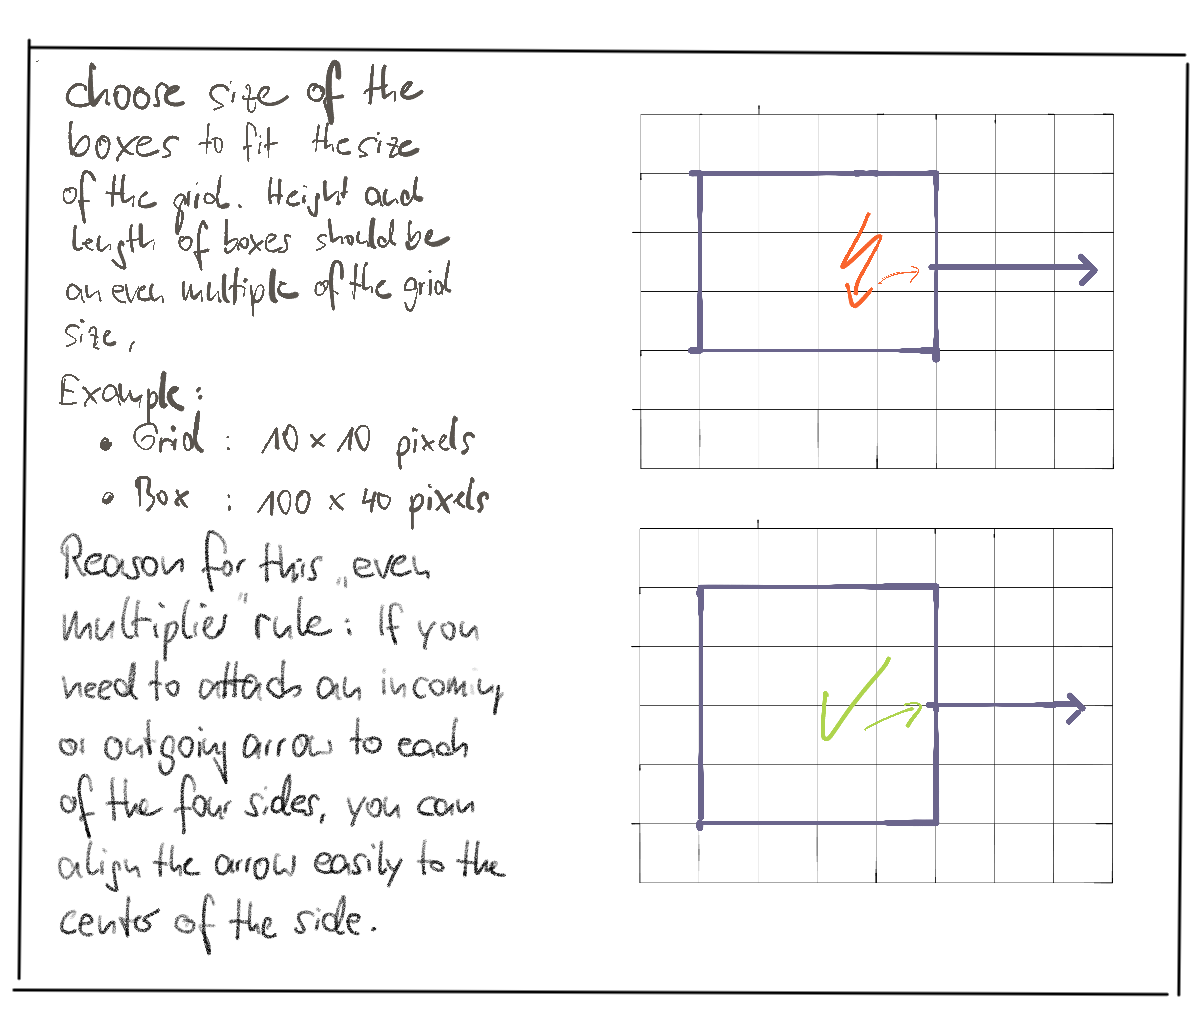 choose size of the
boxes to fit the size
of the grid. Height and
length of boxes should be
an even multiple of the grid
size,
Example:
• Grid : 10 x 10 pixels
• Box : 100 x 40 pixels
Reason for this „even
multiplier" rule: If you
need to attach an incoming
or outgoing arrow to each
of the four sides, you can
align the arrow easily to the
center of the side.